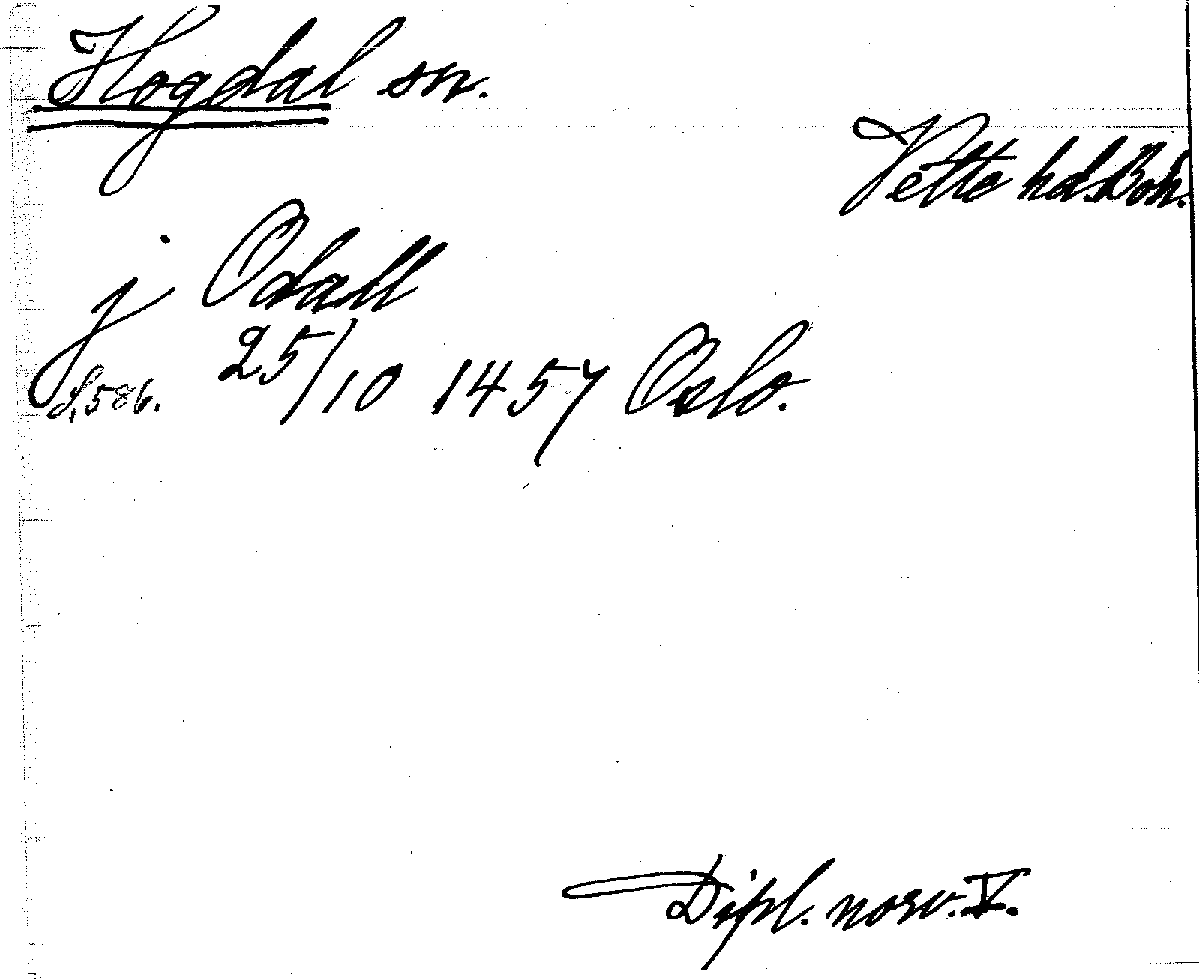 Hogdal sn.
Vette hd. Boh.
j Odall
25/10 1457 Oslo.
S, 586.
Dipl. norv. V.